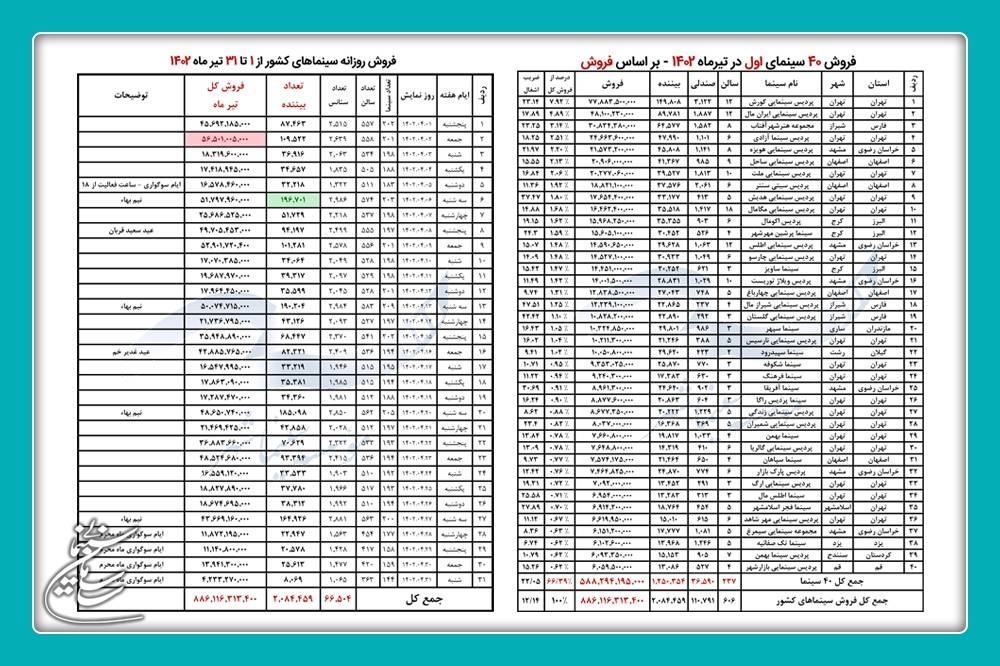 فروش ۴۰ سینمای اول در تیرماه ۱۴۰۲ - بر اساس فروش
ردیف استان شهر نام سینما سالن صندلی بیننده فروش درصد از فروش کل ضریب اشغال
۱ تهران تهران پردیس سینمایی کورش ۱۲ ۳,۱۲۲ ۱۴۹,۸۰۸ ۷۷,۸۸۳,۵۰۰,۰۰۰ ۷.۹۲ ٪ ۲۳.۱۴
۲ تهران تهران پردیس سینمایی ایران مال ۱۲ ۱,۸۸۷ ۸۹,۷۸۱ ۴۸,۱۰۰,۲۳۰,۰۰۰ ۴.۸۹ ٪ ۱۷.۸۹
۳ فارس شیراز مجموعه هنرشهرآفتاب ۸ ۱,۵۸۲ ۶۴,۵۷۷ ۳۰,۸۳۴,۳۸۰,۰۰۰ ۳.۱۴ ٪ ۲۳.۲۵
۴ تهران تهران پردیس سینما آزادی ۶ ۱,۱۰۱ ۴۷,۹۹۰ ۲۴,۶۶۳,۶۰۰,۰۰۰ ۲.۵۱ ٪ ۱۸.۲۵
۵ خراسان رضوی مشهد پردیس سینمایی هویزه ۸ ۱,۱۴۱ ۴۵,۸۰۸ ۲۱,۵۷۳,۲۰۰,۰۰۰ ۲.۲۰ ٪ ۲۱.۹۷
۶ اصفهان اصفهان پردیس سینمایی ساحل ۹ ۹۸۵ ۴۱,۳۶۷ ۲۰,۹۰۶,۰۰۰,۰۰۰ ۲.۱۳ ٪ ۱۵.۵۵
۷ تهران تهران پردیس سینمایی ملت ۱۰ ۱,۸۱۳ ۳۹,۵۲۷ ۲۰,۲۷۷,۰۶۰,۰۰۰ ۲.۰۶ ٪ ۱۶.۸۴
۸ تهران تهران پردیس سیتی سنتر ۶ ۲,۰۶۱ ۳۷,۵۷۶ ۱۸,۸۲۱,۱۰۰,۰۰۰ ۱.۹۲ ٪ ۱۱.۳۶
۹ تهران تهران پردیس سینمایی هدیش ۵ ۴۱۳ ۳۳,۱۷۷ ۱۷,۶۵۴,۴۰۰,۰۰۰ ۱.۸۰ ٪ ۳۷.۴۷
۱۰ تهران تهران پردیس سینمایی مگامال ۱۸ ۱,۴۱۷ ۳۵,۵۱۸ ۱۶,۴۶۲,۴۰۰,۰۰۰ ۱.۶۸ ٪ ۱۴.۸۸
۱۱ البرز کرج پردیس اکومال ۶ ۹۰۳ ۳۵,۳۵۵ ۱۵,۹۶۸,۲۵۰,۰۰۰ ۱.۶۲ ٪ ۱۹.۱۵
۱۲ البرز کرج سینما پرشین مهرشهر ۴ ۵۲۶ ۳۰,۴۵۲ ۱۵,۶۰۵,۱۰۰,۰۰۰ ۱.۵۹ ٪ ۲۴.۳
۱۳ خراسان رضوی مشهد پردیس سینمایی اطلس ۱۲ ۱,۰۶۳ ۲۹,۶۲۸ ۱۴,۵۹۰,۶۵۰,۰۰۰ ۱.۴۸ ٪ ۱۵.۰۷
۱۴ تهران تهران پردیس سینمایی چارسو ۶ ۱,۰۴۹ ۳۰,۹۳۳ ۱۴,۵۲۷,۱۰۰,۰۰۰ ۱.۴۸ ٪ ۱۴.۰۹
۱۵ البرز کرج سینما ساویز ۳ ۶۳۱ ۲۰,۲۵۲ ۱۴,۴۵۱,۰۰۰,۰۰۰ ۱.۴۷ ٪ ۱۵.۴۲
۱۶ خراسان رضوی مشهد پردیس ویلاژ توریست ۱۰ ۱,۰۲۹ ۲۸,۸۳۱ ۱۴,۰۰۱,۵۰۰,۰۰۰ ۱.۴۳ ٪ ۱۱.۴۹
۱۷ اصفهان اصفهان پردیس سینمایی چهارباغ ۵ ۷۴۸ ۲۷,۰۴۳ ۱۲,۸۳۸,۵۰۰,۰۰۰ ۱.۳۱ ٪ ۹.۷۴
۱۸ فارس شیراز پردیس سینمایی شیراز مال ۴ ۲۳۷ ۲۲,۸۶۵ ۱۲,۲۳۹,۱۰۰,۰۰۰ ۱.۲۵ ٪ ۴۷.۵۱
۱۹ فارس شیراز پردیس سینمایی گلستان ۳ ۲۹۲ ۲۲,۸۹۰ ۱۰,۸۲۸,۲۰۰,۰۰۰ ۱.۱۰ ٪ ۴۲.۴۲
۲۰ مازندران ساری سینما سپهر ۳ ۹۸۶ ۲۹,۸۰۱ ۱۰,۳۲۴,۸۵۰,۰۰۰ ۱.۰۵ ٪ ۱۶.۴۳
۲۱ تهران تهران پردیس سینمایی نارسیس ۵ ۳۸۸ ۲۱,۲۴۶ ۱۰,۲۱۱,۳۰۰,۰۰۰ ۱.۰۴ ٪ ۱۶.۰۲
۲۲ گیلان رشت سینما سپیدرود ۲ ۴۲۳ ۲۹,۶۲۰ ۱۰,۰۵۰,۸۰۰,۰۰۰ ۱.۰۲ ٪ ۹.۴۱
۲۳ تهران تهران سینما شکوفه ۳ ۷۷۰ ۲۵,۸۷۰ ۹,۳۵۳,۰۲۵,۰۰۰ ۰.۹۵ ٪ ۱۰.۷۱
۲۴ تهران تهران سینما فرهنگ ۳ ۶۱۳ ۱۷,۳۸۳ ۹,۲۴۰,۳۰۰,۰۰۰ ۰.۹۴ ٪ ۱۱.۲۳
۲۵ خراسان رضوی مشهد سینما آفریقا ۳ ۹۰۲ ۲۴,۶۴۰ ۸,۹۶۱,۳۰۰,۰۰۰ ۰.۹۱ ٪ ۳۰.۶۹
۲۶ تهران تهران سینما پردیس راگا ۳ ۶۰۴ ۲۰,۸۶۳ ۸,۸۷۷,۶۰۰,۰۰۰ ۰.۹۰ ٪ ۱۶.۲۴
۲۷ تهران تهران پردیس سینمایی زندگی ۵ ۱,۲۲۹ ۲۰,۲۲۲ ۸,۶۷۷,۳۵۰,۰۰۰ ۰.۸۸ ٪ ۸.۶۲
۲۸ تهران تهران پردیس سینمایی شمیران ۵ ۳۶۹ ۱۶,۳۶۸ ۸,۰۳۷,۰۰۰,۰۰۰ ۰.۸۲ ٪ ۴۳.۴
۲۹ تهران تهران سینما بهمن ۴ ۱,۰۳۳ ۱۹,۸۱۷ ۷,۶۶۰,۸۰۰,۰۰۰ ۰.۷۸ ٪ ۱۳.۸۴
۳۰ تهران تهران پردیس سینمایی گالریا ۶ ۴۱۰ ۱۴,۳۱۹ ۷,۶۴۸,۸۰۰,۰۰۰ ۰.۷۸ ٪ ۱۳.۰۹
۳۱ اصفهان اصفهان سینما سپاهان ۴ ۶۵۰ ۲۱,۴۶۴ ۷,۵۷۴,۱۷۵,۰۰۰ ۰.۷۷ ٪ ۹.۷۳
۳۲ خراسان رضوی مشهد پردیس پارک بازار ۶ ۷۷۴ ۲۴,۸۷۰ ۷,۴۶۴,۸۲۵,۰۰۰ ۰.۷۶ ٪ ۱۲.۴۲
۳۳ تهران تهران پردیس سینمایی ارگ ۳ ۲۹۱ ۱۳,۴۵۲ ۷,۰۹۲,۰۰۰,۰۰۰ ۰.۷۲ ٪ ۱۹.۲۱
۳۴ تهران تهران سینما اطلس مال ۳ ۲۸۳ ۱۳,۲۱۳ ۶,۹۵۴,۰۰۰,۰۰۰ ۰.۷۱ ٪ ۲۵.۵۸
۳۵ تهران اسلامشهر سینما فجر اسلامشهر ۵ ۴۵۴ ۱۸,۷۶۴ ۶,۹۱۴,۲۰۰,۰۰۰ ۰.۷۰ ٪ ۲۷.۸۹
۳۶ تهران تهران پردیس سینمایی مهر شاهد ۶ ۶۱۵ ۱۵,۰۱۰ ۶,۶۱۹,۹۵۰,۰۰۰ ۰.۶۷ ٪ ۱۱.۱۲
۳۷ خراسان رضوی مشهد مجموعه سینمایی سیمرغ ۵ ۱,۰۸۱ ۱۷,۷۷۷ ۶,۱۵۱,۲۰۰,۰۰۰ ۰.۶۳ ٪ ۸.۳۶
۳۸ یزد یزد سینما تک صفائیه ۵ ۱,۲۴۶ ۱۳,۹۶۸ ۶,۱۰۲,۶۰۰,۰۰۰ ۰.۶۲ ٪ ۶.۷۴
۳۹ کردستان سنندج پردیس سینما بهمن ۷ ۹۰۵ ۱۵,۱۵۳ ۶,۰۹۳,۳۵۰,۰۰۰ ۰.۶۲ ٪ ۱۰.۷۹
۴۰ قم قم پردیس سینمایی بازارشهر ۴ ۵۲۷ ۱۳,۰۸۶ ۶,۰۵۹,۵۰۰,۰۰۰ ۰.۶۲ ٪ ۱۵.۲۶
جمع کل ۴۰ سینما ۲۳۷ ۳۶,۵۹۰ ۱,۲۵۰,۳۵۴ ۵۸۸,۲۹۴,۱۹۵,۰۰۰ ۶۶/۳۹٪ ۲۲/۰۵
جمع کل فروش سینماهای کشور ۶۰۶ ۱۱۰,۷۹۱ ۲,۰۸۴,۴۵۹ ۸۸۶,۱۱۶,۳۱۳,۴۰۰ ۱۰۰٪ ۱۲/۱۴
فروش روزانه سینماهای کشور از ۱ تا ۳۱ تیر ماه ۱۴۰۲
ردیف ایام هفته روز نمایش تعداد سینما تعداد سالن تعداد سانس تعداد بیننده فروش کل تیر ماه توضیحات
۱ پنجشنبه ۱۴۰۲.۰۴.۰۱ ۲۰۲ ۵۵۷ ۲,۵۱۵ ۸۷,۴۶۳ ۴۵,۶۹۲,۱۸۵,۰۰۰
۲ جمعه ۱۴۰۲.۰۴.۰۲ ۲۰۱ ۵۵۸ ۲,۶۳۹ ۱۰۹,۵۲۲ ۵۶,۵۰۱,۰۰۵,۰۰۰
۳ شنبه ۱۴۰۲.۰۴.۰۳ ۱۹۸ ۵۳۴ ۲,۰۶۳ ۳۶,۹۱۶ ۱۸,۳۱۹,۶۰۰,۰۰۰
۴ یکشنبه ۱۴۰۲.۰۴.۰۴ ۱۸۸ ۵۰۵ ۱,۸۳۵ ۳۴,۶۵۷ ۱۷,۴۱۸,۹۴۵,۰۰۰
۵ دوشنبه ۱۴۰۲.۰۴.۰۵ ۱۸۳ ۵۱۱ ۱,۳۲۲ ۳۲,۲۱۸ ۱۶,۵۷۸,۴۶۰,۰۰۰ ایام سوگواری - ساعت فعالیت از ۱۸
۶ سه شنبه ۱۴۰۲.۰۴.۰۶ ۲۰۳ ۵۷۴ ۲,۹۸۶ ۱۹۶,۷۰۱ ۵۱,۷۹۷,۹۶۰,۰۰۰ نیم بهاء
۷ چهارشنبه ۱۴۰۲.۰۴.۰۷ ۱۹۷ ۵۳۷ ۲,۲۱۸ ۵۱,۷۲۹ ۲۵,۶۸۶,۵۲۵,۰۰۰
۸ پنجشنبه ۱۴۰۲.۰۴.۰۸ ۱۹۷ ۵۵۵ ۲,۴۹۹ ۹۴,۱۹۷ ۴۹,۷۰۵,۴۵۳,۰۰۰ عید سعید قربان
۹ جمعه ۱۴۰۲.۰۴.۰۹ ۲۰۱ ۵۵۶ ۲,۵۷۸ ۱۰۱,۲۸۱ ۵۲,۹۰۱,۷۲۰,۴۰۰
۱۰ شنبه ۱۴۰۲.۰۴.۱۰ ۱۹۸ ۵۲۸ ۲,۰۴۹ ۳۴,۰۶۴ ۱۷,۰۷۰,۳۸۵,۰۰۰
۱۱ یکشنبه ۱۴۰۲.۰۴.۱۱ ۱۹۸ ۵۲۹ ۲,۰۹۷ ۳۹,۳۱۷ ۱۹,۶۸۷,۹۷۰,۰۰۰
۱۲ دوشنبه ۱۴۰۲.۰۴.۱۲ ۲۰۱ ۵۲۸ ۲,۰۴۵ ۳۵,۵۹۹ ۱۷,۹۶۴,۴۵۰,۰۰۰
۱۳ سه شنبه ۱۴۰۲.۰۴.۱۳ ۲۰۹ ۵۸۳ ۲,۹۸۴ ۱۹۰,۲۰۴ ۵۰,۰۷۴,۷۱۵,۰۰۰ نیم بهاء
۱۴ چهارشنبه ۱۴۰۲.۰۴.۱۴ ۱۹۷ ۵۲۷ ۲,۰۹۳ ۴۳,۱۲۶ ۲۱,۷۳۶,۷۹۵,۰۰۰
۱۵ پنجشنبه ۱۴۰۲.۰۴.۱۵ ۲۰۲ ۵۴۱ ۲,۳۷۰ ۶۸,۴۴۷ ۳۵,۹۴۸,۸۹۰,۰۰۰
۱۶ جمعه ۱۴۰۲.۰۴.۱۶ ۱۹۴ ۵۳۶ ۲,۴۰۹ ۸۲,۳۲۱ ۴۲,۸۸۵,۷۶۵,۰۰۰ عید غدیر خم
۱۷ شنبه ۱۴۰۲.۰۴.۱۷ ۱۹۵ ۵۱۵ ۱,۹۴۶ ۳۳,۲۱۹ ۱۶,۵۴۷,۹۹۵,۰۰۰
۱۸ یکشنبه ۱۴۰۲.۰۴.۱۸ ۱۹۴ ۵۱۵ ۱,۹۸۵ ۳۵,۳۸۱ ۱۷,۸۶۳,۰۹۰,۰۰۰
۱۹ دوشنبه ۱۴۰۲.۰۴.۱۹ ۱۸۸ ۵۱۲ ۱,۹۸۱ ۳۴,۳۶۰ ۱۷,۲۸۷,۴۷۰,۰۰۰
۲۰ سه شنبه ۱۴۰۲.۰۴.۲۰ ۲۰۵ ۵۶۲ ۲,۸۵۰ ۱۸۵,۰۹۸ ۴۸,۶۵۰,۷۴۰,۰۰۰ نیم بهاء
۲۱ چهارشنبه ۱۴۰۲.۰۴.۲۱ ۱۹۷ ۵۱۲ ۲,۰۲۸ ۴۲,۸۵۸ ۲۱,۴۶۹,۴۲۵,۰۰۰
۲۲ پنجشنبه ۱۴۰۲.۰۴.۲۲ ۱۹۳ ۵۳۳ ۲,۳۲۲ ۷۰,۶۲۹ ۳۶,۸۸۳,۶۶۰,۰۰۰
۲۳ جمعه ۱۴۰۲.۰۴.۲۳ ۱۹۴ ۵۳۶ ۲,۴۱۵ ۹۳,۳۹۴ ۴۸,۵۲۴,۶۸۰,۰۰۰
۲۴ شنبه ۱۴۰۲.۰۴.۲۴ ۱۹۲ ۵۱۰ ۱,۹۰۳ ۳۳,۵۳۳ ۱۶,۵۵۹,۱۲۰,۰۰۰
۲۵ یکشنبه ۱۴۰۲.۰۴.۲۵ ۱۹۳ ۵۱۷ ۱,۹۶۶ ۳۷,۷۸۰ ۱۸,۸۲۷,۸۹۰,۰۰۰
۲۶ دوشنبه ۱۴۰۲.۰۴.۲۶ ۱۹۴ ۵۱۰ ۱,۹۹۲ ۳۸,۳۱۲ ۱۸,۶۷۴,۶۹۵,۰۰۰
۲۷ سه شنبه ۱۴۰۲.۰۴.۲۷ ۲۰۰ ۵۶۳ ۲,۸۸۱ ۱۶۴,۹۲۶ ۴۳,۶۶۹,۱۶۰,۰۰۰ نیم بهاء
۲۸ چهارشنبه ۱۴۰۲.۰۴.۲۸ ۱۷۷ ۴۵۴ ۱,۵۶۳ ۲۲,۹۴۷ ۱۱,۸۷۲,۱۹۵,۰۰۰ ایام سوگواری ماه محرم
۲۹ پنجشنبه ۱۴۰۲.۰۴.۲۹ ۱۵۸ ۴۱۷ ۱,۴۲۸ ۲۰,۵۷۸ ۱۱,۱۴۰,۸۰۰,۰۰۰ ایام سوگواری ماه محرم
۳۰ جمعه ۱۴۰۲.۰۴.۳۰ ۱۵۹ ۴۲۰ ۱,۴۷۷ ۲۵,۶۱۳ ۱۳,۹۴۱,۳۰۰,۰۰۰ ایام سوگواری ماه محرم
۳۱ شنبه ۱۴۰۲.۰۴.۳۱ ۱۴۴ ۳۶۳ ۱,۰۶۵ ۸,۰۶۹ ۴,۲۳۳,۲۷۰,۰۰۰ ایام سوگواری ماه محرم
جمع کل ۶۶,۵۰۴ ۲,۰۸۴,۴۵۹ ۸۸۶,۱۱۶,۳۱۳,۴۰۰